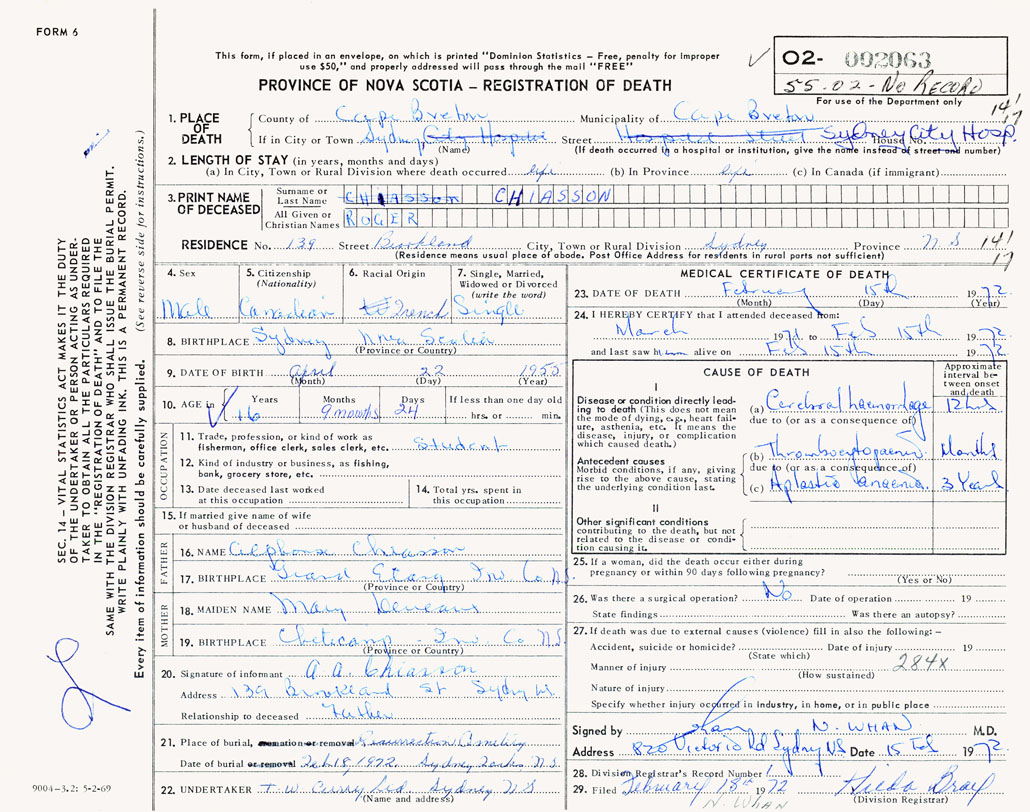 FORM 6
This form, if placed in an envelope, on which is printed "Dominion Statistics – Free, penalty for improper
use $50," and properly addressed will pass through the mail "FREE"
PROVINCE OF NOVA SCOTIA – REGISTRATION OF DEATH
02- 002063
55-02-No RECORD
For use of the Department only
14 1/17
1. PLACE OF DEATH
County of Cape Breton Municipality of Cape Breton
If in City or Town Sydney, City Hospital Street Hospital Street Sydney City Hosp. House No.
(Name) (If death occurred in a hospital or institution, give the name instead of street and number)
2. LENGTH OF STAY (in years, months and days)
(a) In City, Town or Rural Division where death occurred life (b) In Province life (c) In Canada (if immigrant)
3. PRINT NAME OF DECEASED
Surname or Last Name CHIASSON CHIASSON
All Given or Christian Names ROGER
RESIDENCE No. 139 Street Brookland City, Town or Rural Division Sydney Province N S 14 1/17
(Residence means usual place of abode. Post Office Address for residents in rural parts not sufficient)
4. Sex Male
5. Citizenship (Nationality) Canadian
6. Racial Origin French
7. Single, Married, Widowed or Divorced (write the word) Single
8. BIRTHPLACE Sydney Nova Scotia
(Province or Country)
9. DATE OF BIRTH April 22 1955
(Month) (Day) (Year)
10. AGE in Years 16 Months 9 months Days 24 If less than one day old hrs. or min.
OCCUPATION
11. Trade, profession, or kind of work as fisherman, office clerk, sales clerk, etc. Student
12. Kind of industry or business, as fishing, bank, grocery store, etc.
13. Date deceased last worked at this occupation
14. Total yrs. spent in this occupation
15. If married give name of wife or husband of deceased
FATHER
16. NAME Alphonse Chiasson
17. BIRTHPLACE Grand Etang Inv. Co N.S.
(Province or Country)
MOTHER
18. MAIDEN NAME Mary Deveaux
19. BIRTHPLACE Cheticamp - Inv. Co N.S.
(Province or Country)
20. Signature of informant A. A. Chiasson
Address 139 Brookland St Sydney
Relationship to deceased Father
21. Place of burial, cremation or removal Resurrection Cemetery
Date of burial or removal Feb 18, 1972 Sydney N.S.
22. UNDERTAKER T. W. Curry Ltd. Sydney N S
(Name and address)
MEDICAL CERTIFICATE OF DEATH
23. DATE OF DEATH February 15th 1972
(Month) (Day) (Year)
24. I HEREBY CERTIFY that I attended deceased from:
March 1971 to Feb 15th 1972
and last saw him alive on Feb 15th 1972
CAUSE OF DEATH
Approximate interval between onset and death
I
Disease or condition directly leading to death (This does not mean the mode of dying, e.g., heart failure, asthenia, etc. It means the disease, injury, or complication which caused death.)
(a) Cerebral haemorrhage 12 hrs
due to (or as a consequence of)
Antecedent causes
Morbid conditions, if any, giving rise to the above cause, stating the underlying condition last.
(b) Thrombocytopaenia Months
due to (or as a consequence of)
(c) Aplastic anaemia 3 Years
II
Other significant conditions
contributing to the death, but not related to the disease or condition causing it.
25. If a woman, did the death occur either during pregnancy or within 90 days following pregnancy?
(Yes or No)
26. Was there a surgical operation? No Date of operation 19
State findings Was there an autopsy?
27. If death was due to external causes (violence) fill in also the following: –
Accident, suicide or homicide? Date of injury 19
(State which) 284X
Manner of injury
(How sustained)
Nature of injury
Specify whether injury occurred in industry, in home, or in public place
Signed by Whan N. WHAN M.D.
Address 820 Victoria Rd Sydney NS Date 15 Feb 1972
28. Division Registrar's Record Number
29. Filed February 18th 1972 Hilda Bray
N. WHAN (Division Registrar)
SEC. 14 – VITAL STATISTICS ACT MAKES IT THE DUTY
OF THE UNDERTAKER OR PERSON ACTING AS UNDER-
TAKER TO OBTAIN ALL THE PARTICULARS REQUIRED
IN THE "REGISTRATION OF DEATH" AND TO FILE THE
SAME WITH THE DIVISION REGISTRAR WHO SHALL ISSUE THE BURIAL PERMIT.
WRITE PLAINLY WITH UNFADING INK. THIS IS A PERMANENT RECORD.
Every item of information should be carefully supplied. (See reverse side for instructions.)
9004-3.2: 5-2-69